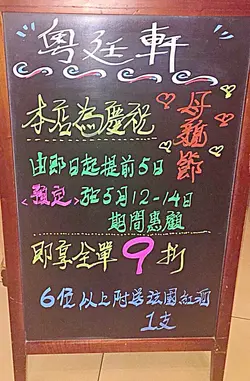 粵廷軒
本店為慶祝
母親節
由即日起提前5日
<預定>於5月12-14日
期間惠顧
即享全單9折
6位以上附送法國紅酒
1支